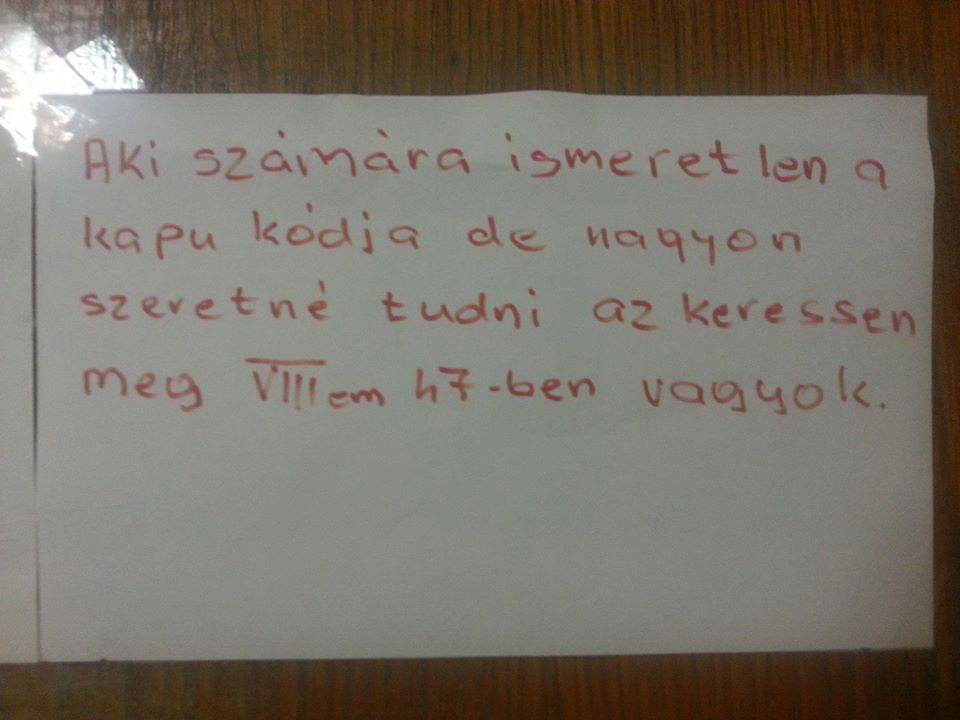 Aki számára ismeretlen a
kapu kódja de nagyon
szeretné tudni az keressen
meg VIII em 47-ben vagyok.